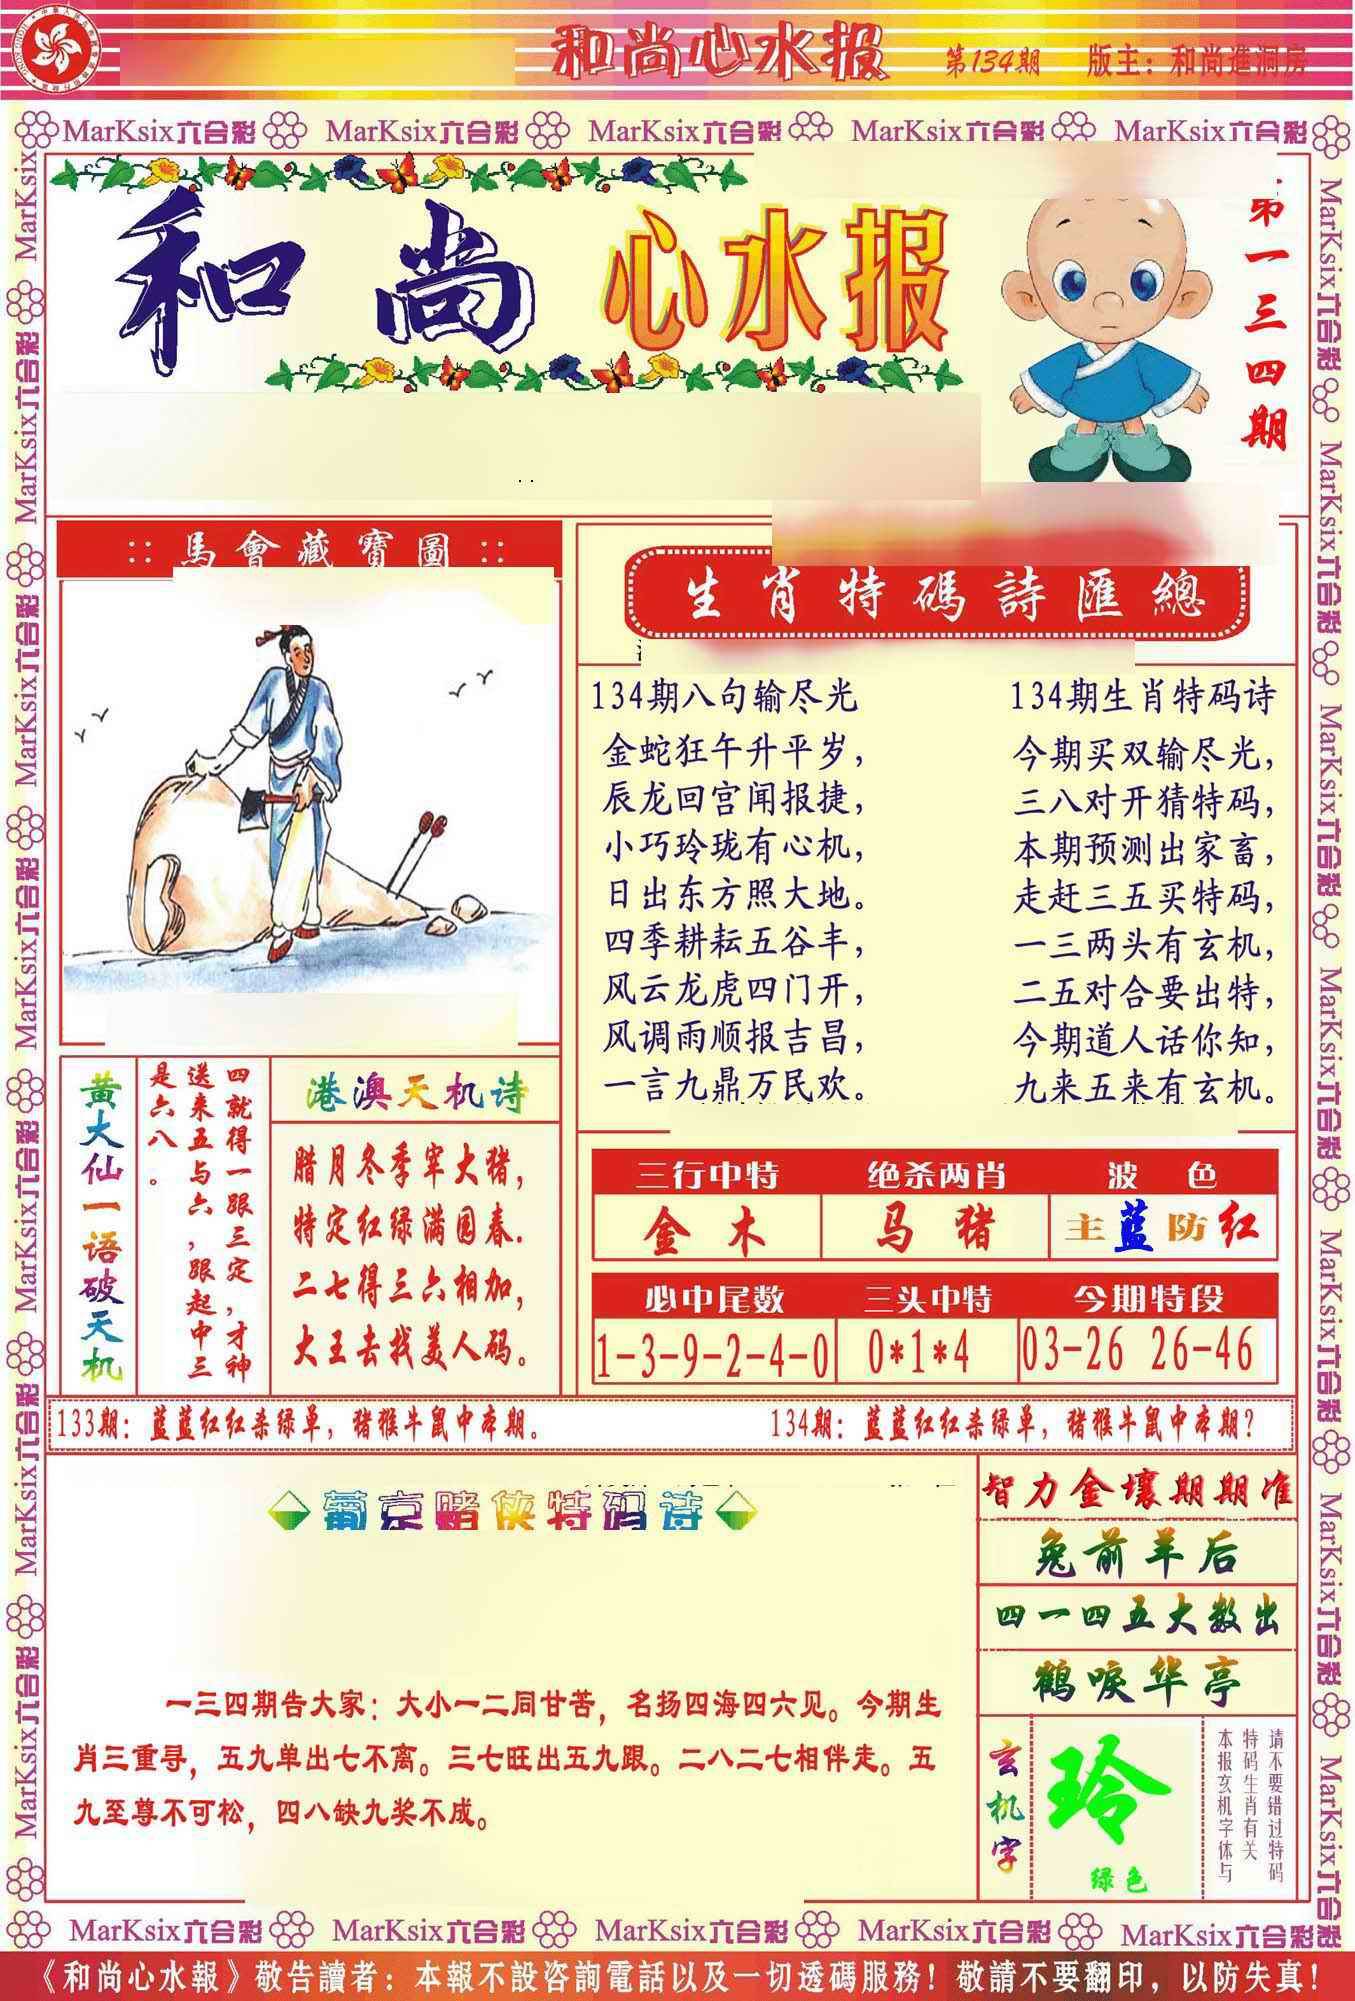 和尚心水报 第134期 版主：和尚進洞房
MarKsix六合彩 MarKsix六合彩 MarKsix六合彩 MarKsix六合彩 MarKsix六合彩
和尚 心水报
第一三四期
:: 馬會藏寶圖 ::
生肖特碼詩匯總
134期八句输尽光
金蛇狂午升平岁，
辰龙回宫闻报捷，
小巧玲珑有心机，
日出东方照大地。
四季耕耘五谷丰，
风云龙虎四门开，
风调雨顺报吉昌，
一言九鼎万民欢。
134期生肖特码诗
今期买双输尽光，
三八对开猜特码，
本期预测出家畜，
走赶三五买特码，
一三两头有玄机，
二五对合要出特，
今期道人话你知，
九来五来有玄机。
黄大仙一语破天机
四就得一跟三定，才神
送来五与六，跟起中三
是六八。
港澳天机诗
腊月冬季宰大猪，
特定红绿满园春.
二七得三六相加，
大王去找美人码。
三行中特 绝杀两肖 波色
金木 马猪 主蓝防红
必中尾数 三头中特 今期特段
1-3-9-2-4-0 0*1*4 03-26 26-46
133期：蓝蓝红红杀绿单，猪猴牛鼠中本期。 134期：蓝蓝红红杀绿单，猪猴牛鼠中本期？
葡京赌侠特码诗
一三四期告大家：大小一二同甘苦，名扬四海四六见。今期生
肖三重寻，五九单出七不离。三七旺出五九跟。二八二七相伴走。五
九至尊不可松，四八缺九奖不成。
智力金壤期期准
兔前羊后
四一四五大数出
鹤唳华亭
玄机字
玲
绿色
请不要错过特码
特码生肖有关
本报玄机字体与
MarKsix六合彩 MarKsix六合彩 MarKsix六合彩 MarKsix六合彩 MarKsix六合彩
《和尚心水報》敬告讀者：本報不設咨詢電話以及一切透碼服務！敬請不要翻印，以防失真！